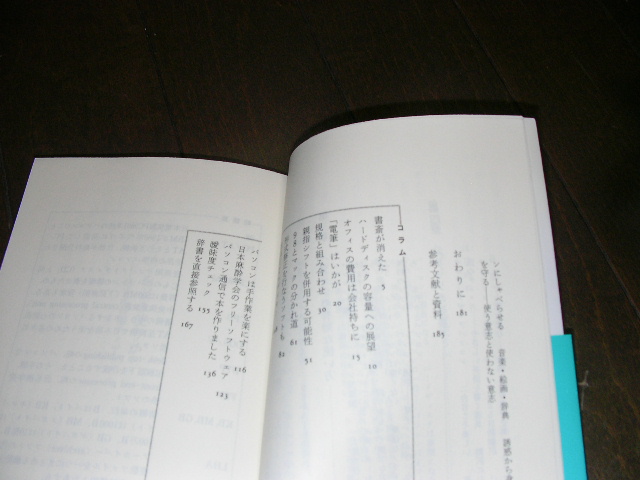 ンにしゃべらせる 音楽・絵画・辞典 誘惑から身
を守る——使う意志と使わない意志
おわりに 181
参考文献と資料 185
コラム
書斎が消えた 5
ハードディスクの容量への展望 10
オフィスの費用は会社持ちに 15
「電筆」はいかが 20
規格と組み合わせ 30
親指シフトを併用する可能性 51
の分かれ道 61
82
パソコンは手作業を楽にする 116
日本麻酔学会のフリーソフトウェア 123
パソコン通信で本を作りました 136
曖昧度チェック 155
辞書を直接参照する 167